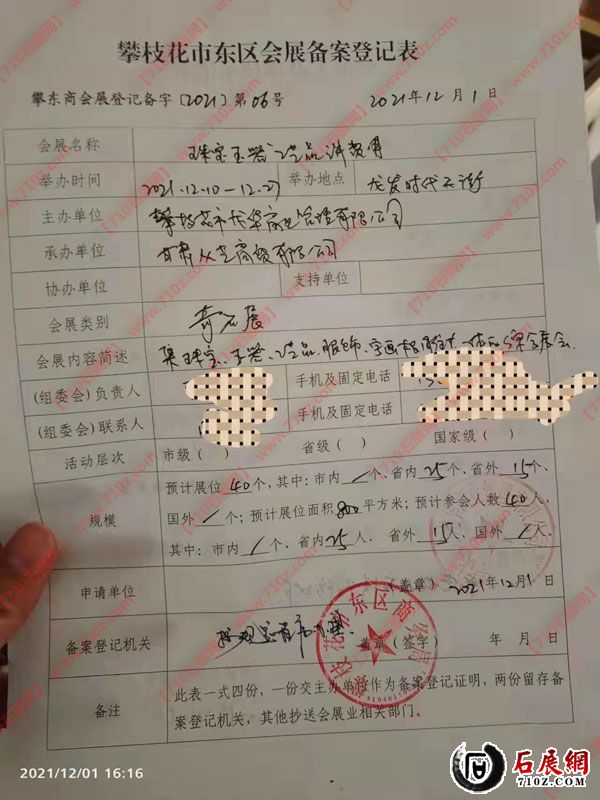 攀枝花市东区会展备案登记表
攀东商会展登记备字〔2021〕第06号 2021年12月1日
会展名称 珠宝玉器工艺品消费周
举办时间 2021.12.10-12.27 举办地点 龙发时代天街
主办单位 攀枝花市龙华商业管理有限公司
承办单位 甘肃 商贸有限公司
协办单位 支持单位
会展类别 奇石展
会展内容简述 集珠宝、玉器、工艺品、服饰、字画 一体的综合展会
(组委会)负责人 手机及固定电话
(组委会)联系人 手机及固定电话
活动层次 市级( ) 省级( ) 国家级( )
规模 预计展位40个,其中:市内/个、省内25个、省外15个、
国外/个;预计展位面积800平方米;预计参会人数40人,
其中:市内/个、省内25人、省外15人、国外/人。
申请单位 (盖章) 2021年12月1日
备案登记机关 盖章(签字) 年 月 日
东区商务局
备注 此表一式四份,一份交主办单位作为备案登记证明,两份留存备
案登记机关,其他抄送会展业相关部门。
2021/12/01 16:16
石展網
710Z.COM
【710石展网】
www.710z.com